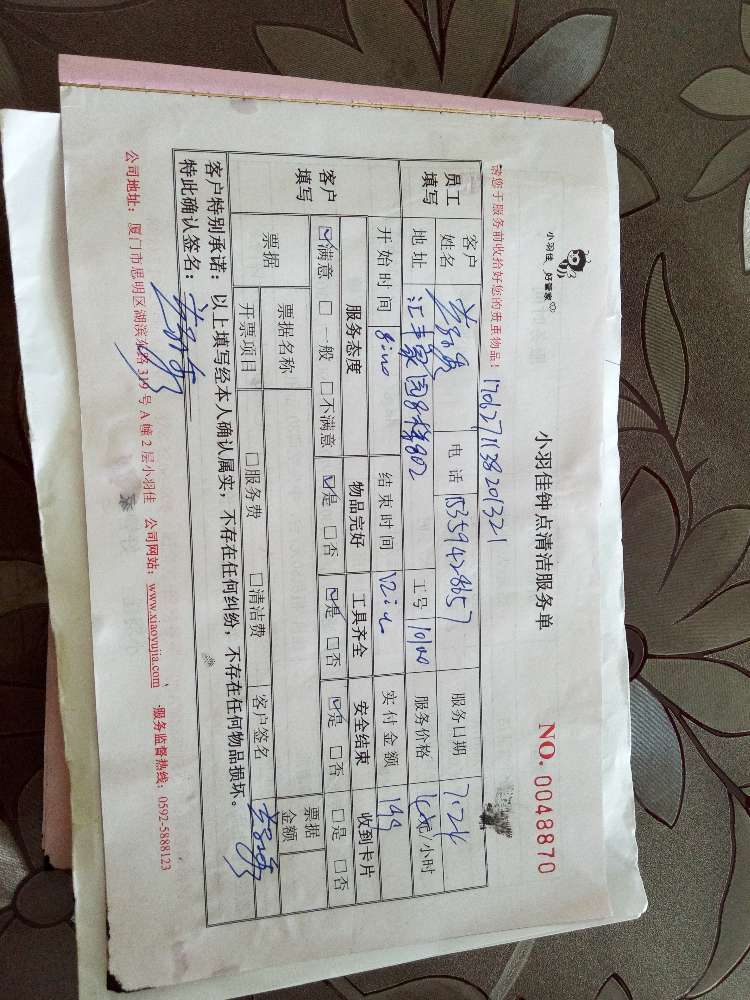 小羽佳 好管家
小羽佳钟点清洁服务单
NO. 0048870
请您于服务前收拾好您的贵重物品！
员工填写 客户姓名 电话 服务日期
地址 汇丰家园8楼802 工号 服务价格 元/小时
开始时间 8:00 结束时间 12:00 实付金额 199
客户填写 服务态度 物品完好 工具齐全 安全结束 收到卡片
☑满意 □一般 □不满意 ☑是 □否 ☑是 □否 ☑是 □否 □是 □否
票据 票据名称 票据金额
开票项目 □服务费 □清洁费 客户签名
客户特别承诺：以上填写经本人确认属实，不存在任何纠纷，不存在任何物品损坏。
特此确认签名：
公司地址：厦门市思明区湖滨东路319号A幢2层小羽佳 公司网站：www.xiaoyujia.com 服务监督热线：0592-5888123